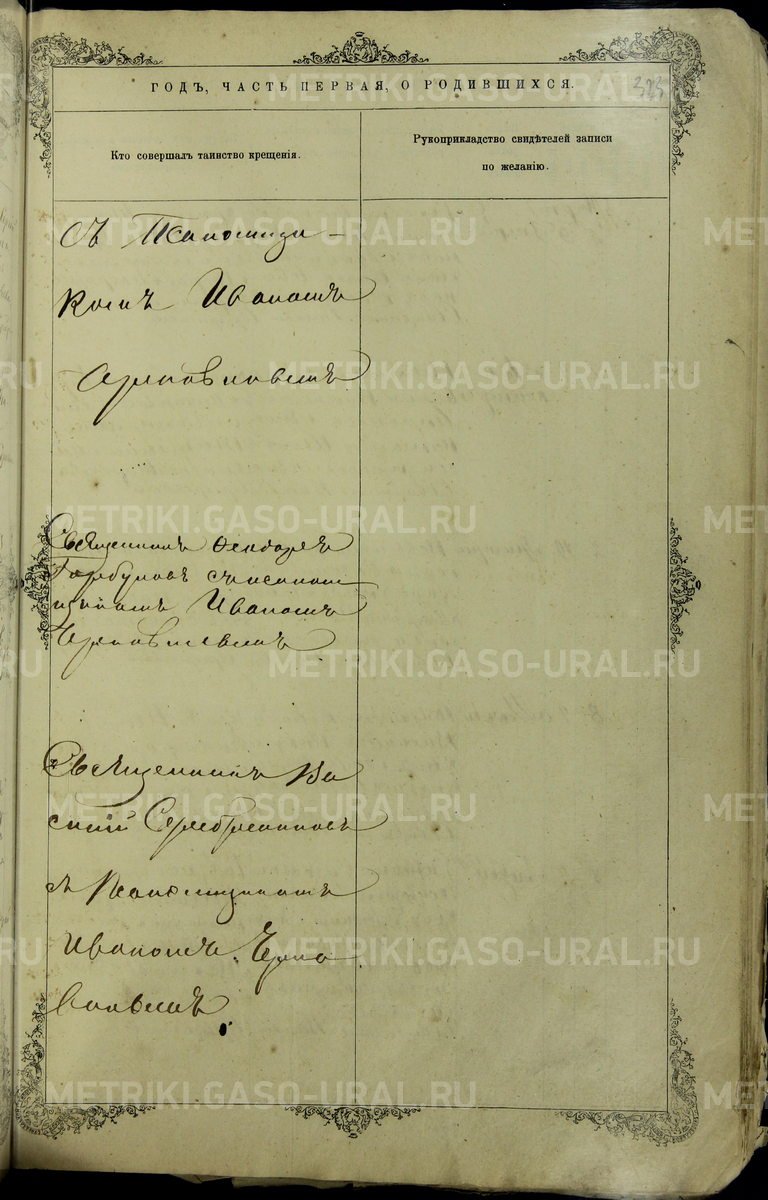 ГОДЪ, ЧАСТЬ ПЕРВАЯ, О РОДИВШИХСЯ.
323
Кто совершалъ таинство крещенія.
Рукоприкладство свидѣтелей записи
по желанію.
съ Псаломщи-
комъ Иваномъ
Священникъ Ѳеодоръ
Горбуновъ съ псалом
щикомъ Иваномъ
Священникъ Ва
силій Серебренниковъ
съ Псаломщикомъ
Иваномъ
METRIKI.GASO-URAL.RU